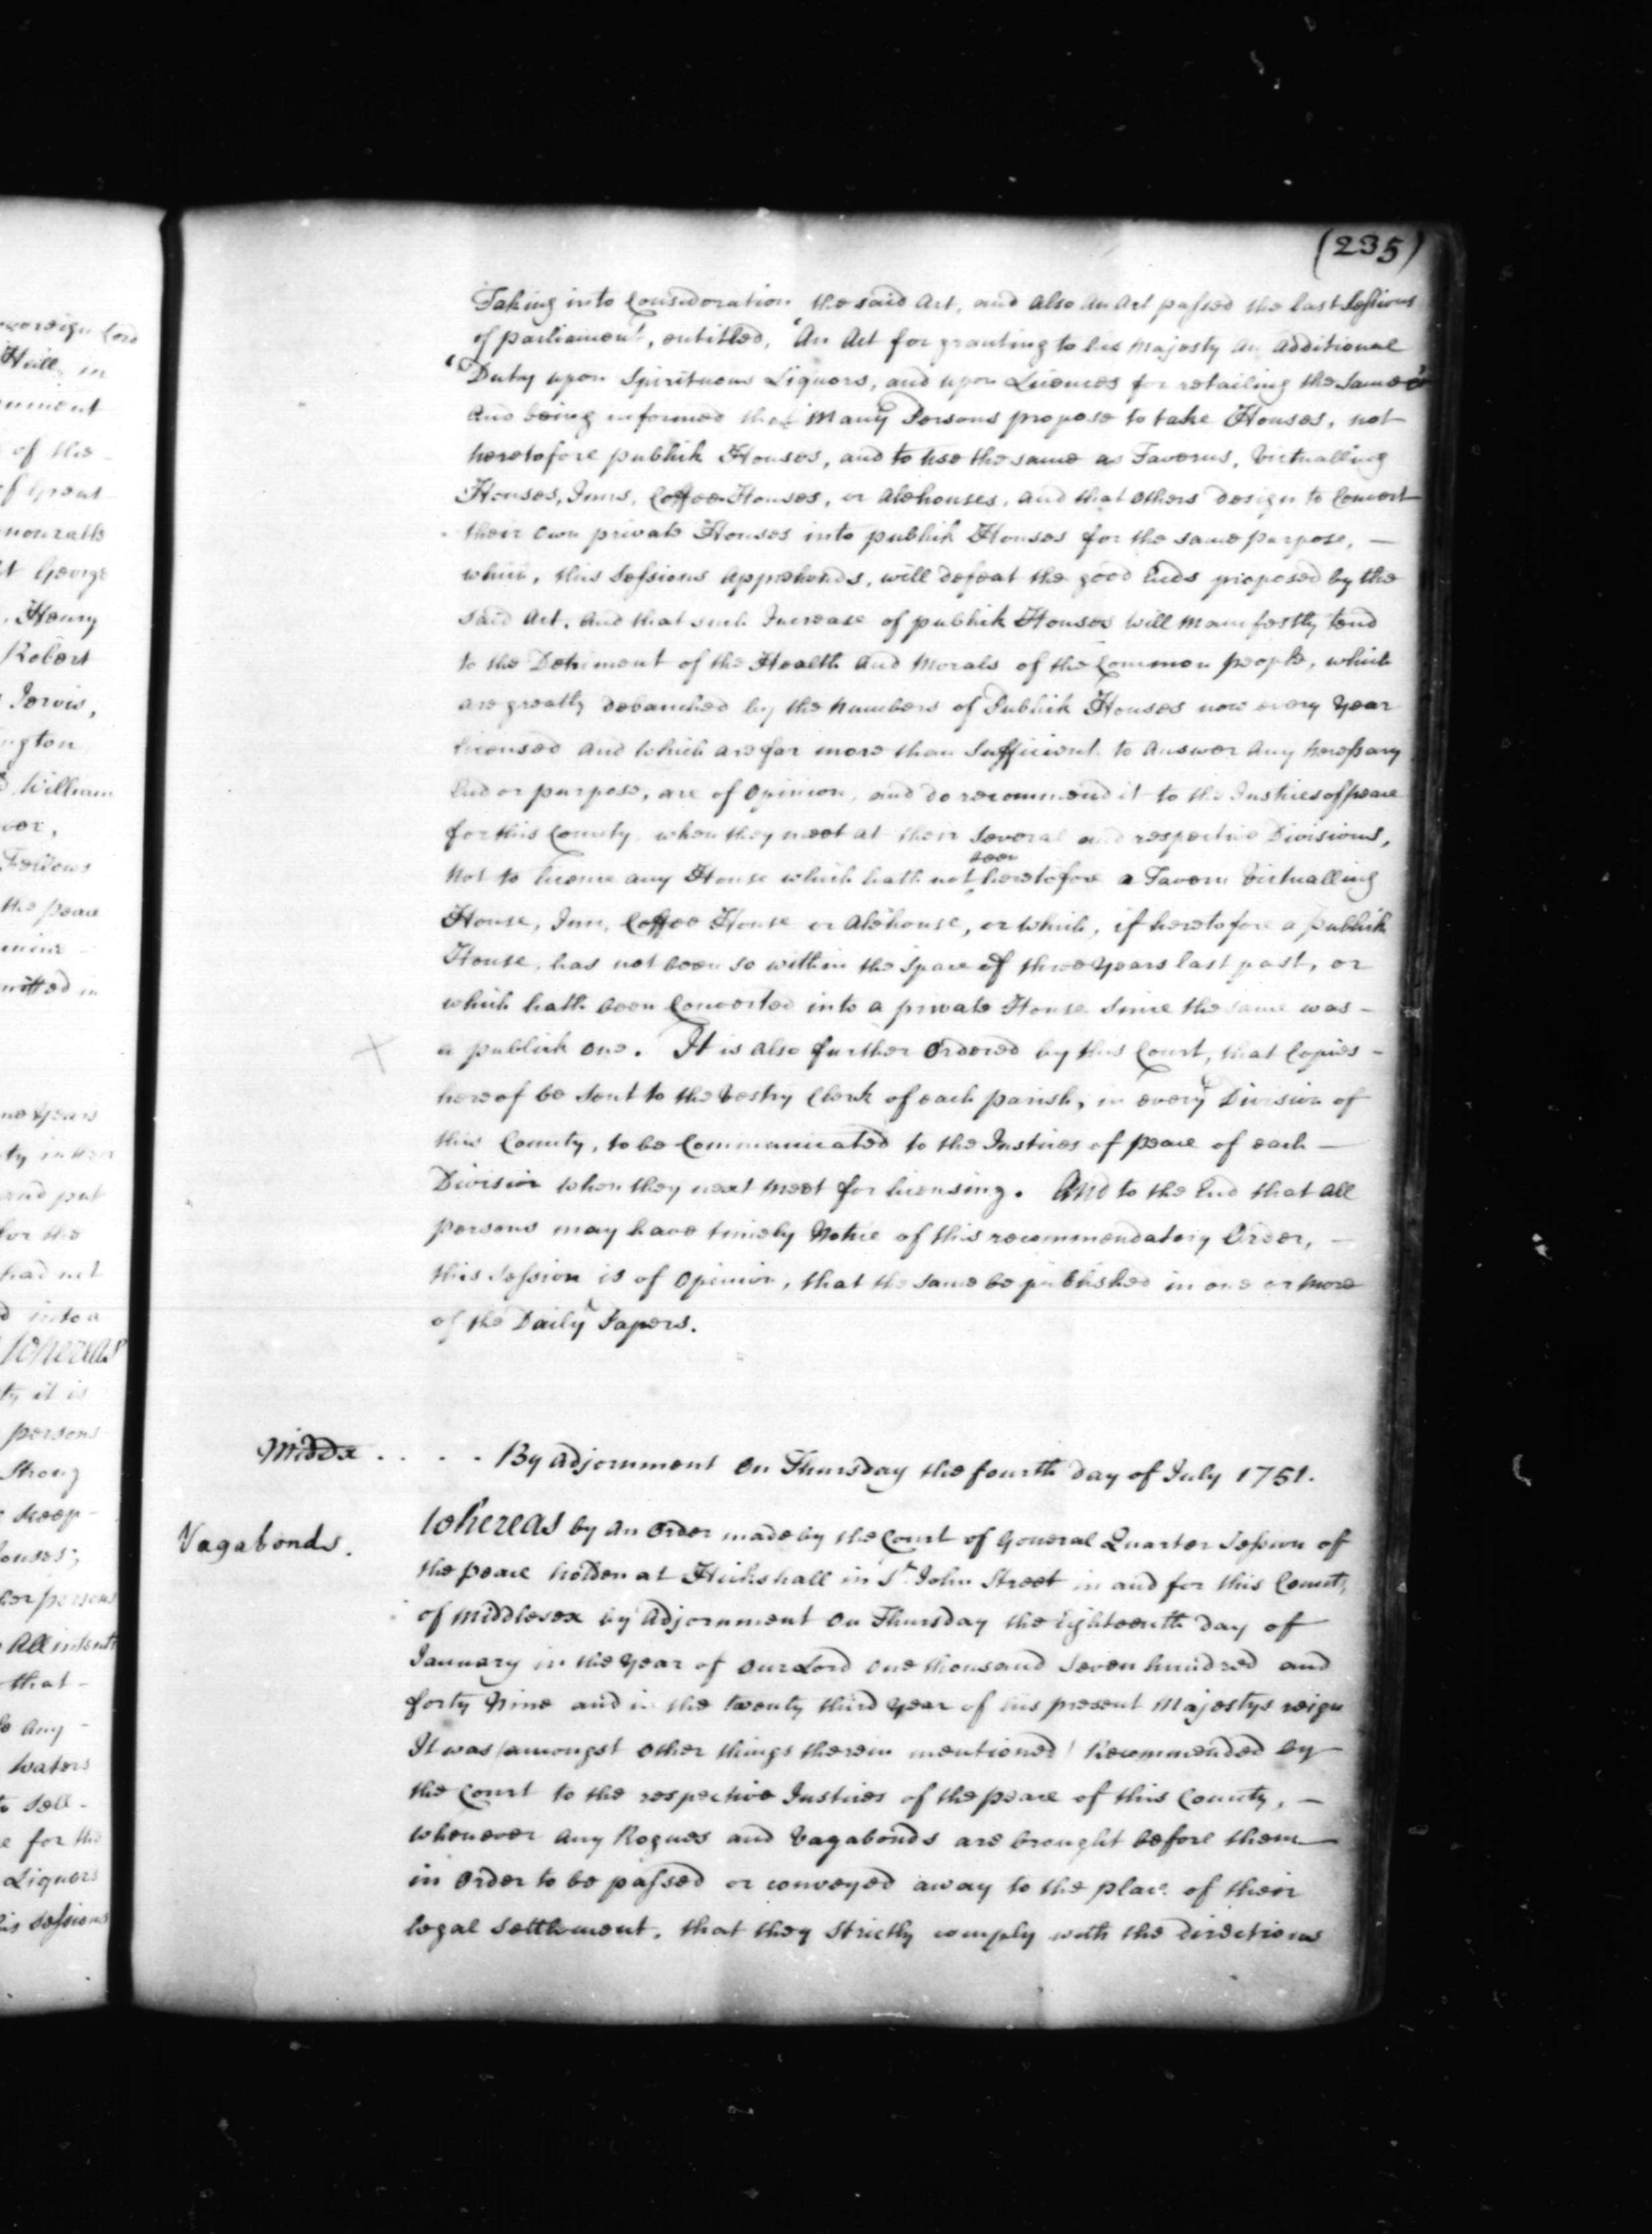 (235)
Taking into Consideration the said Act, and also an Act passed the last Sessions
of parliament, entitled, 'An Act for granting to his Majesty an additional
'Duty upon Spirituous Liquors, and upon Licences for retailing the same'
And being informed that Many Persons propose to take Houses, not
heretofore publick Houses, and to use the same as Taverns, Victualling
Houses, Inns, Coffee Houses, or Alehouses, and that others design to Convert
their own private Houses into publick Houses for the same purpose, —
which, this Sessions apprehends, will defeat the good Ends proposed by the
said Act, and that such Increase of publick Houses will manifestly tend
to the Detriment of the Health and Morals of the Common people, which
are greatly debauched by the Numbers of Publick Houses now every Year
licensed and which are far more than Sufficient to answer any necessary
End or purpose, are of Opinion, and do recommend it to the Justices of peace
for this County, when they meet at their several and respective Divisions,
Not to licence any House which hath not been heretofore a Tavern Victualling
House, Inn, Coffee House or Alehouse, or which, if heretofore a publick
House, has not been so within the Space of three Years last past, or
which hath been Converted into a private House since the same was -
a publick one. It is also further Ordered by this Court, that Copies -
hereof be sent to the Vestry Clerk of each parish, in every Division of
this County, to be Communicated to the Justices of peace of each —
Division when they next meet for licensing. And to the End that all
persons may have timely Notice of this recommendatory Order, —
this Session is of Opinion, that the same be published in one or more
of the Daily Papers.
Middx . . . . By Adjornment on Thursday the fourth day of July 1751.
Vagabonds.
Whereas by an Order made by the Court of General Quarter Session of
the peace holden at Hickshall in St. John Street in and for this County
of Middlesex by Adjornment on Thursday the Eighteenth day of
January in the Year of our Lord One thousand Seven hundred and
forty Nine and in the twenty third Year of his present Majestys reign
It was (amongst other things therein mentioned) Recommended by
the Court to the respective Justices of the peace of this County, —
whenever any Rogues and Vagabonds are brought before them
in Order to be passed or conveyed away to the place of their
legal Settlement, that they strictly comply with the directions